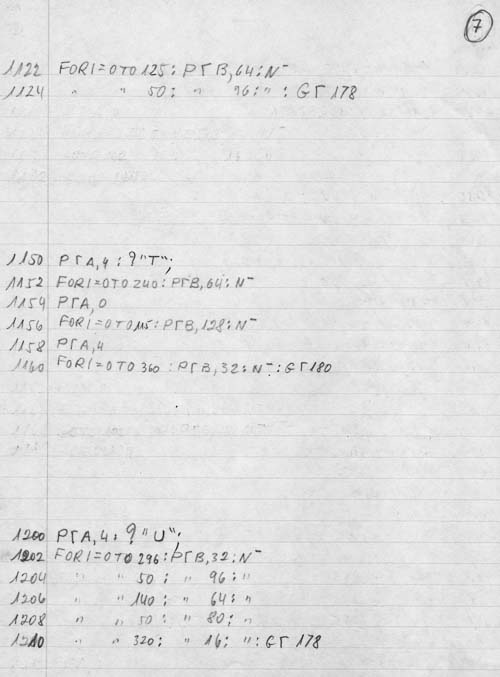 7
1122 FORI=0TO125:PΓB,64:N¯
1124 " " 50: " 96:" :GΓ178
1150 PΓA,4:?"T";
1152 FORI=0TO240:PΓB,64:N¯
1154 PΓA,0
1156 FORI=0TO115:PΓB,128:N¯
1158 PΓA,4
1160 FORI=0TO360:PΓB,32:N¯:GΓ180
1200 PΓA,4:?"U";
1202 FORI=0TO296:PΓB,32:N¯
1204 " " 50: " 96:"
1206 " " 140: " 64:"
1208 " " 50: " 80:"
1210 " " 320: " 16: ":GΓ178